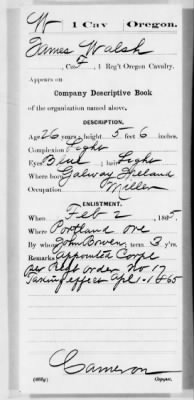 W 1 Cav Oregon.
James Walsh
, Co. F, 1 Reg't Oregon Cavalry.
Appears on
Company Descriptive Book
of the organization named above.
DESCRIPTION.
Age 26 years; height 5 feet 6 inches.
Complexion Light
Eyes Blue; hair Light
Where born Galway Ireland
Occupation Miller
ENLISTMENT.
When Feb 2, 1865.
Where Portland Ore
By whom John Bowen; term 3 y'rs.
Remarks Appointed Corpl
per Regt Order No 17
Taking effect Apl. 1. 1865
Cameron
Copyist.